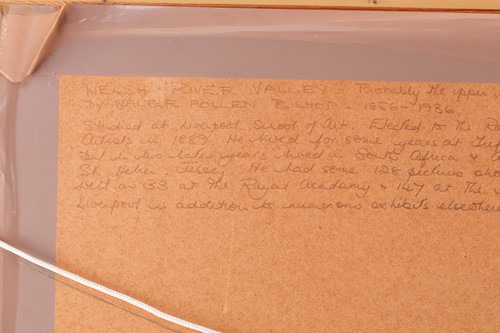 WELSH RIVER VALLEY - Probably the upper
by WALTER FOLLEN BISHOP - 1856-1936.
Studied at Liverpool School of Art. Elected to the R
Artists in 1889. He lived for some years at
but in his later years lived in South Africa &
St. Helier Jersey. He had some 128 pictures
with 33 at the Royal Academy & 147 at the
Liverpool in addition to numerous exhibits elsewhere